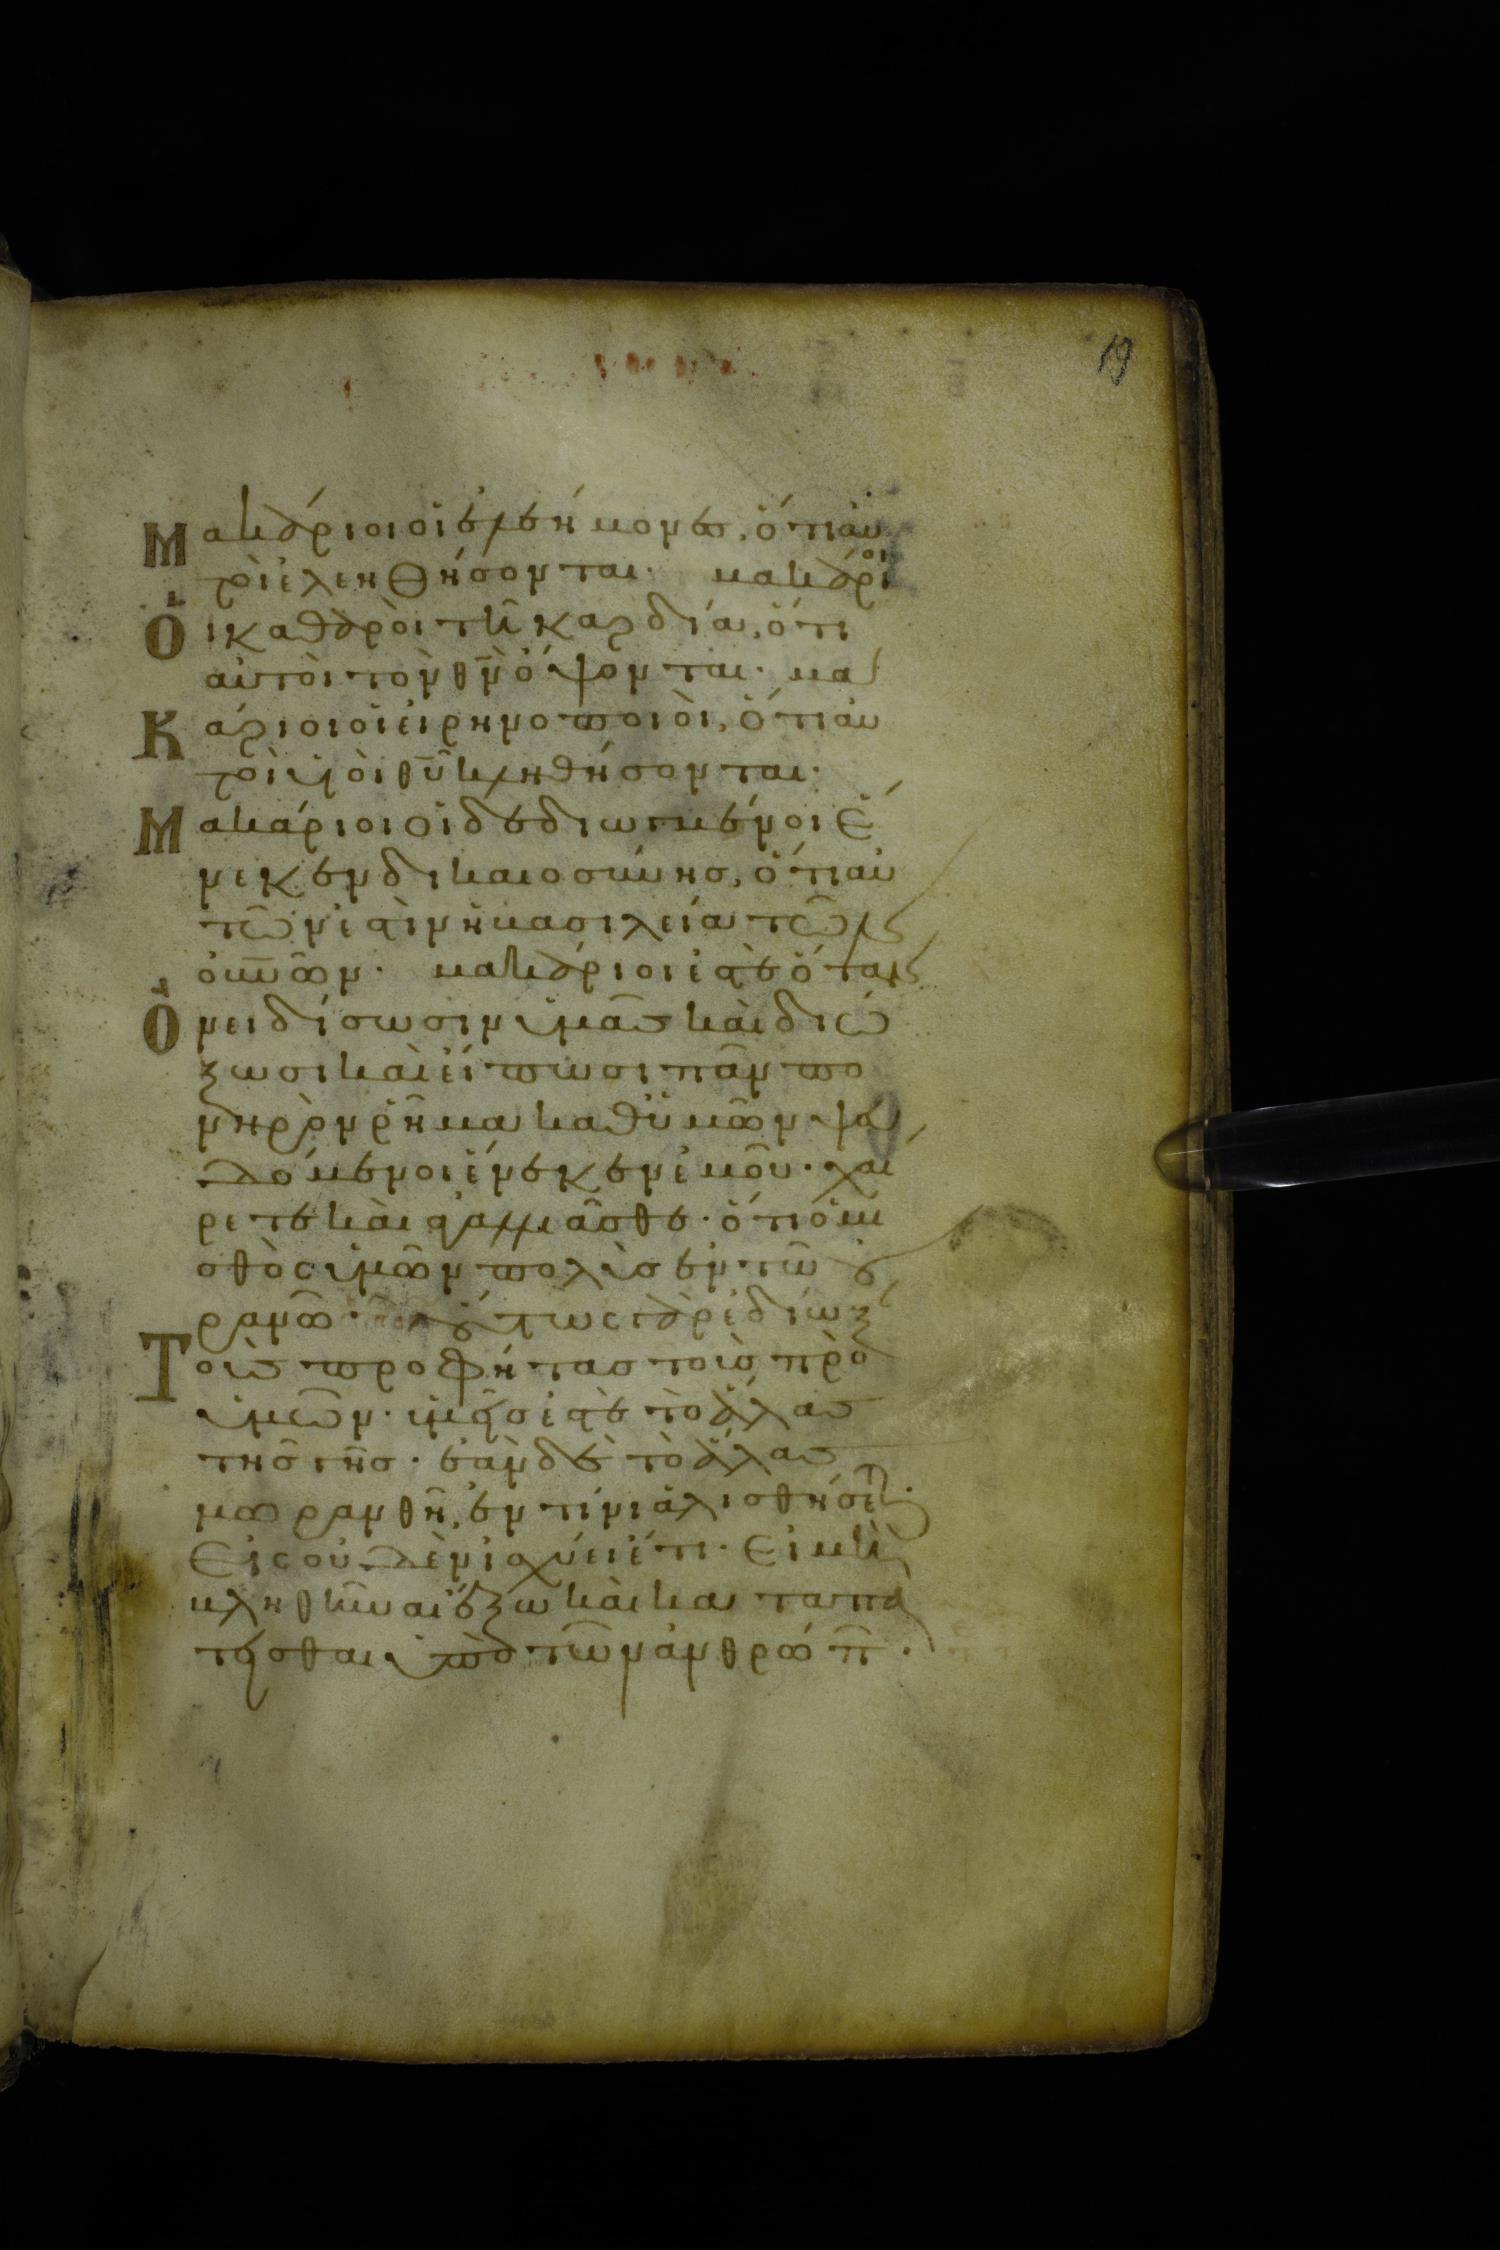 19
Μακάριοι οἱ ἐλεήμονες, ὅτι αὐ
τοὶ ἐλεηθήσονται. μακάριοι
Οἱ καθαροὶ τῆ καρδία, ὅτι
αὐτοὶ τὸν θν ὄψονται. μα
Κάριοι οἱ εἰρηνοποιοὶ, ὅτι αὐ
τοὶ υἱοὶ θυ κληθήσονται.
Μακάριοι οἱ δεδιωγμένοι ἕ
νεκεν δικαιοσύνης, ὅτι αὐ
τῶν ἐστὶν ἡ βασιλεία τῶν
οὐνῶν. μακάριοι ἐστὲ ὅταν
Ὀνειδίσωσιν ὑμᾶς καὶ διώ
ξωσι καὶ εἴπωσι πᾶν πο
νηρὸν ῥῆμα καθ ὑμῶν ψευ
δόμενοι ἕνεκεν ἐμοῦ. χαί
ρετε καὶ ἀγαλλιᾶσθε. ὅτι ὁ μι
σθὸς ὑμῶν πολὺς ἐν τῶ οὐ
ρανῶ. οὕτως γὰρ ἐδίωξ
Τοὺς προφήτας τοὺς πρὸ
ὑμῶν. ὑμεῖς ἐστὲ τὸ ἅλας
τῆς γῆς. ἐὰν δὲ τὸ ἅλας
μωρανθῆ, ἐν τίνι ἁλισθήσεται.
Εἰς οὐδὲν ἰσχύει ἔτι. Εἰ μὴ
βληθῆναι ἔξω καὶ καταπα
τεῖσθαι ὑπὸ τῶν ἀνθρώπ.